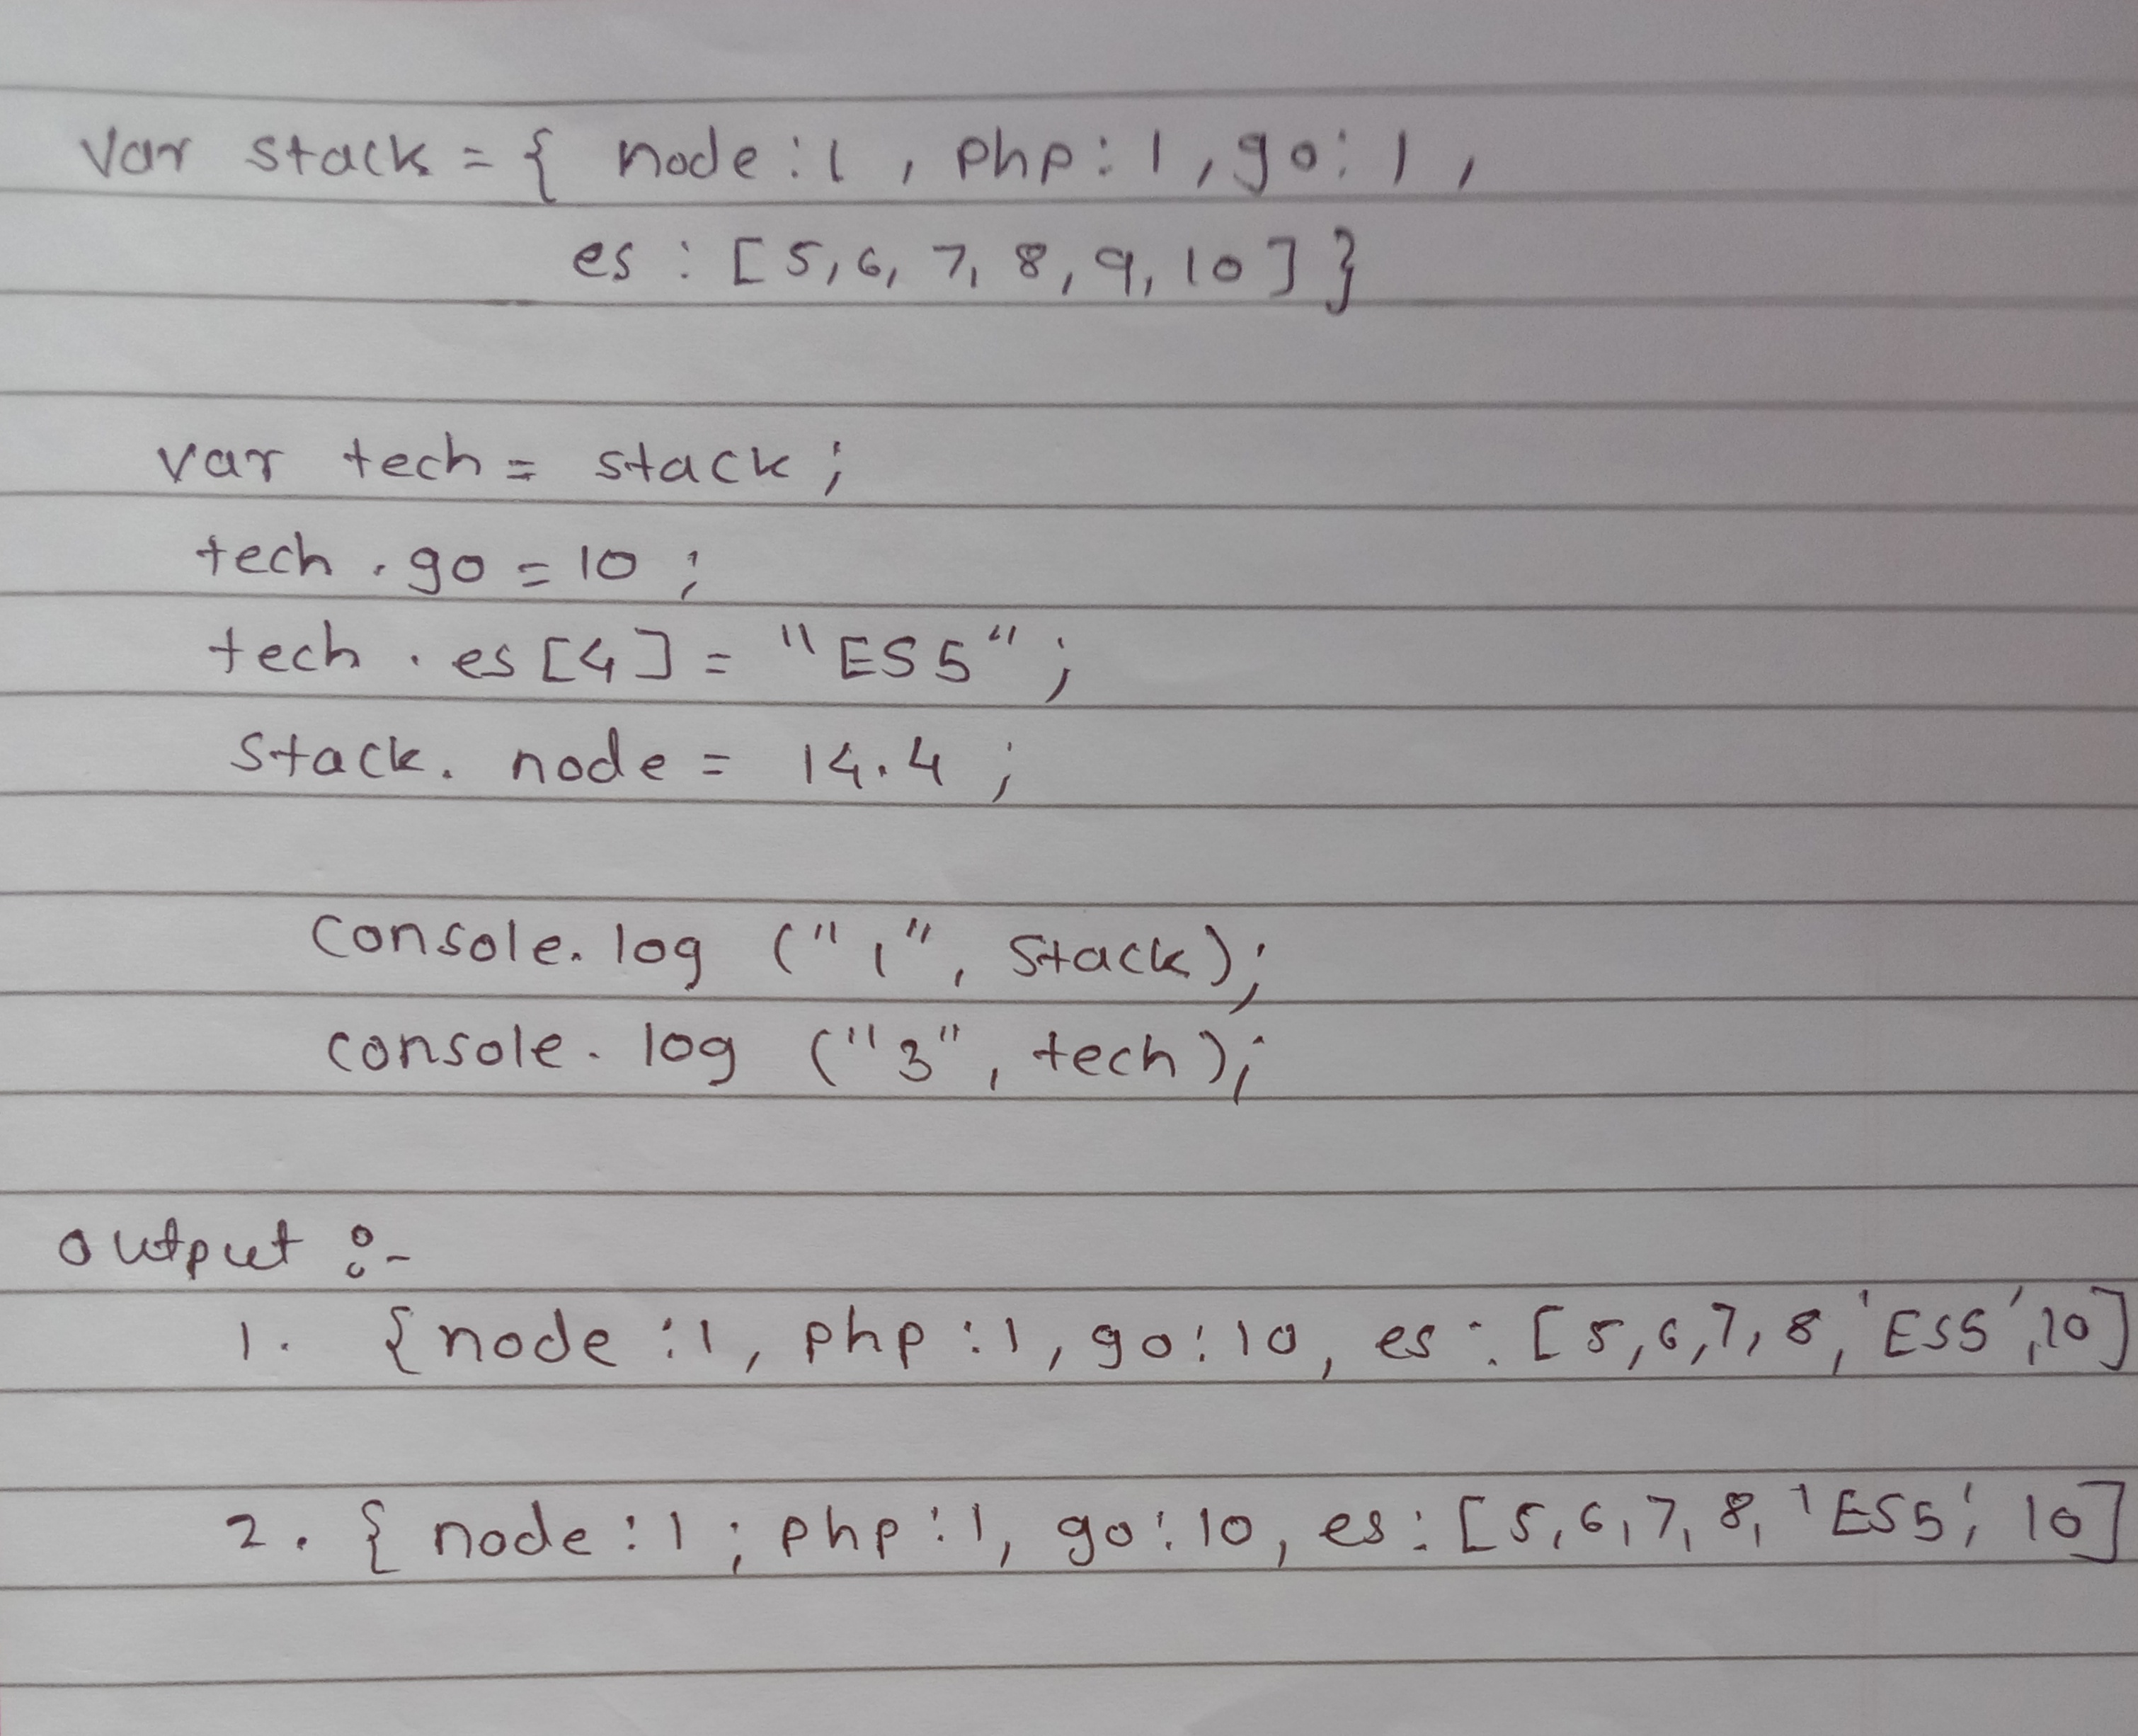 var stack = { node : 1 , php : 1 , go : 1 ,
es : [ 5, 6, 7, 8, 9, 10 ] }
var tech = stack ;
tech . go = 10 ;
tech . es [4] = "ES5" ;
Stack. node = 14.4 ;
console. log ("1", Stack);
console. log ("3", tech );
output :-
1. { node : 1, php : 1, go : 10, es : [ 5,6,7,8, 'ES5', 10]
2. { node : 1 ; php : 1, go : 10, es : [ 5,6,7,8, 'ES5', 10]